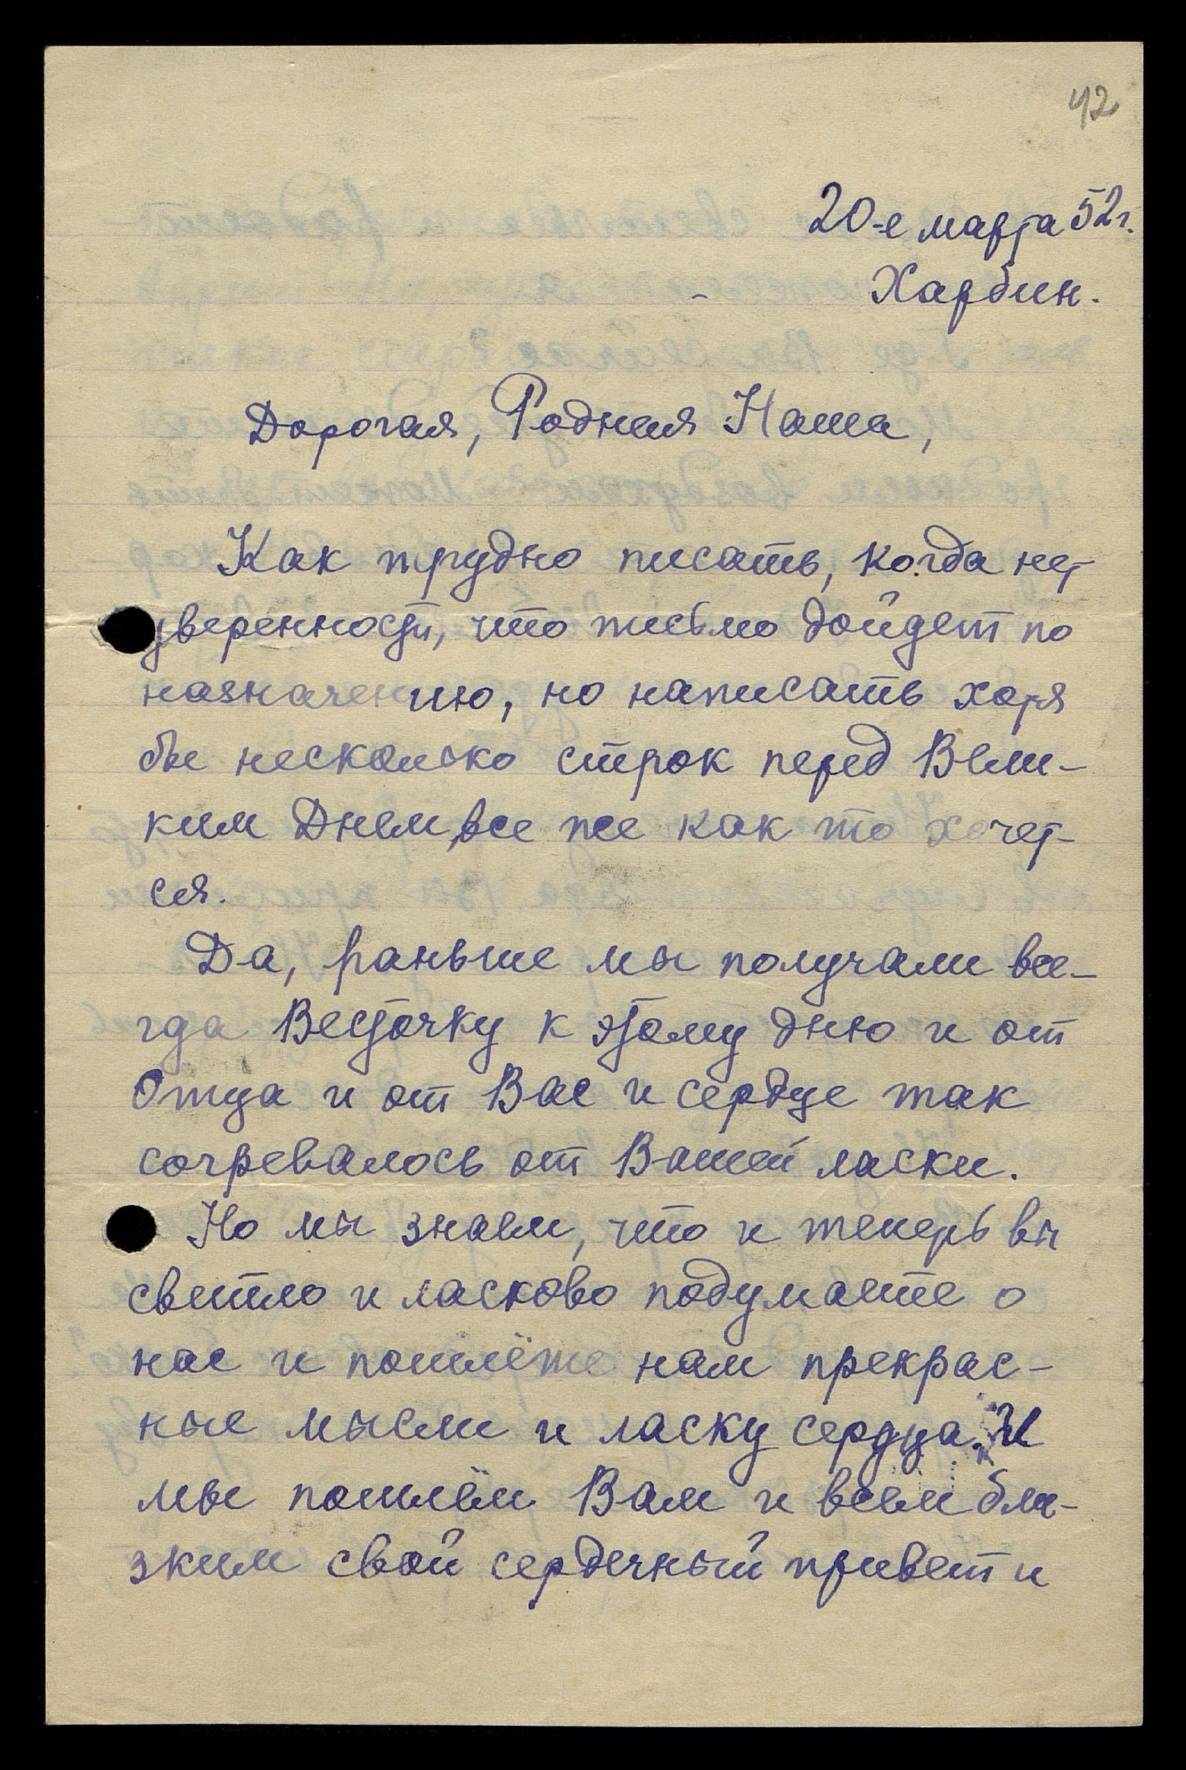 42
20-е марта 52 г.
Харбин.
Дорогая, Родная Наша,
Как трудно писать, когда нет
уверенности, что письмо дойдет по
назначению, но написать хотя
бы несколько строк перед Вели-
ким Днем, все же как то хочет-
ся.
Да, раньше мы получали все-
гда Весточку к этому дню и от
Отца и от Вас и сердце так
согревалось от Вашей ласки.
Но мы знаем, что и теперь вы
светло и ласково подумаете о
нас и пошлёте нам прекрас-
ные мысли и ласку сердца. И
мы пошлём Вам и всем бли-
зким свой сердечный привет и